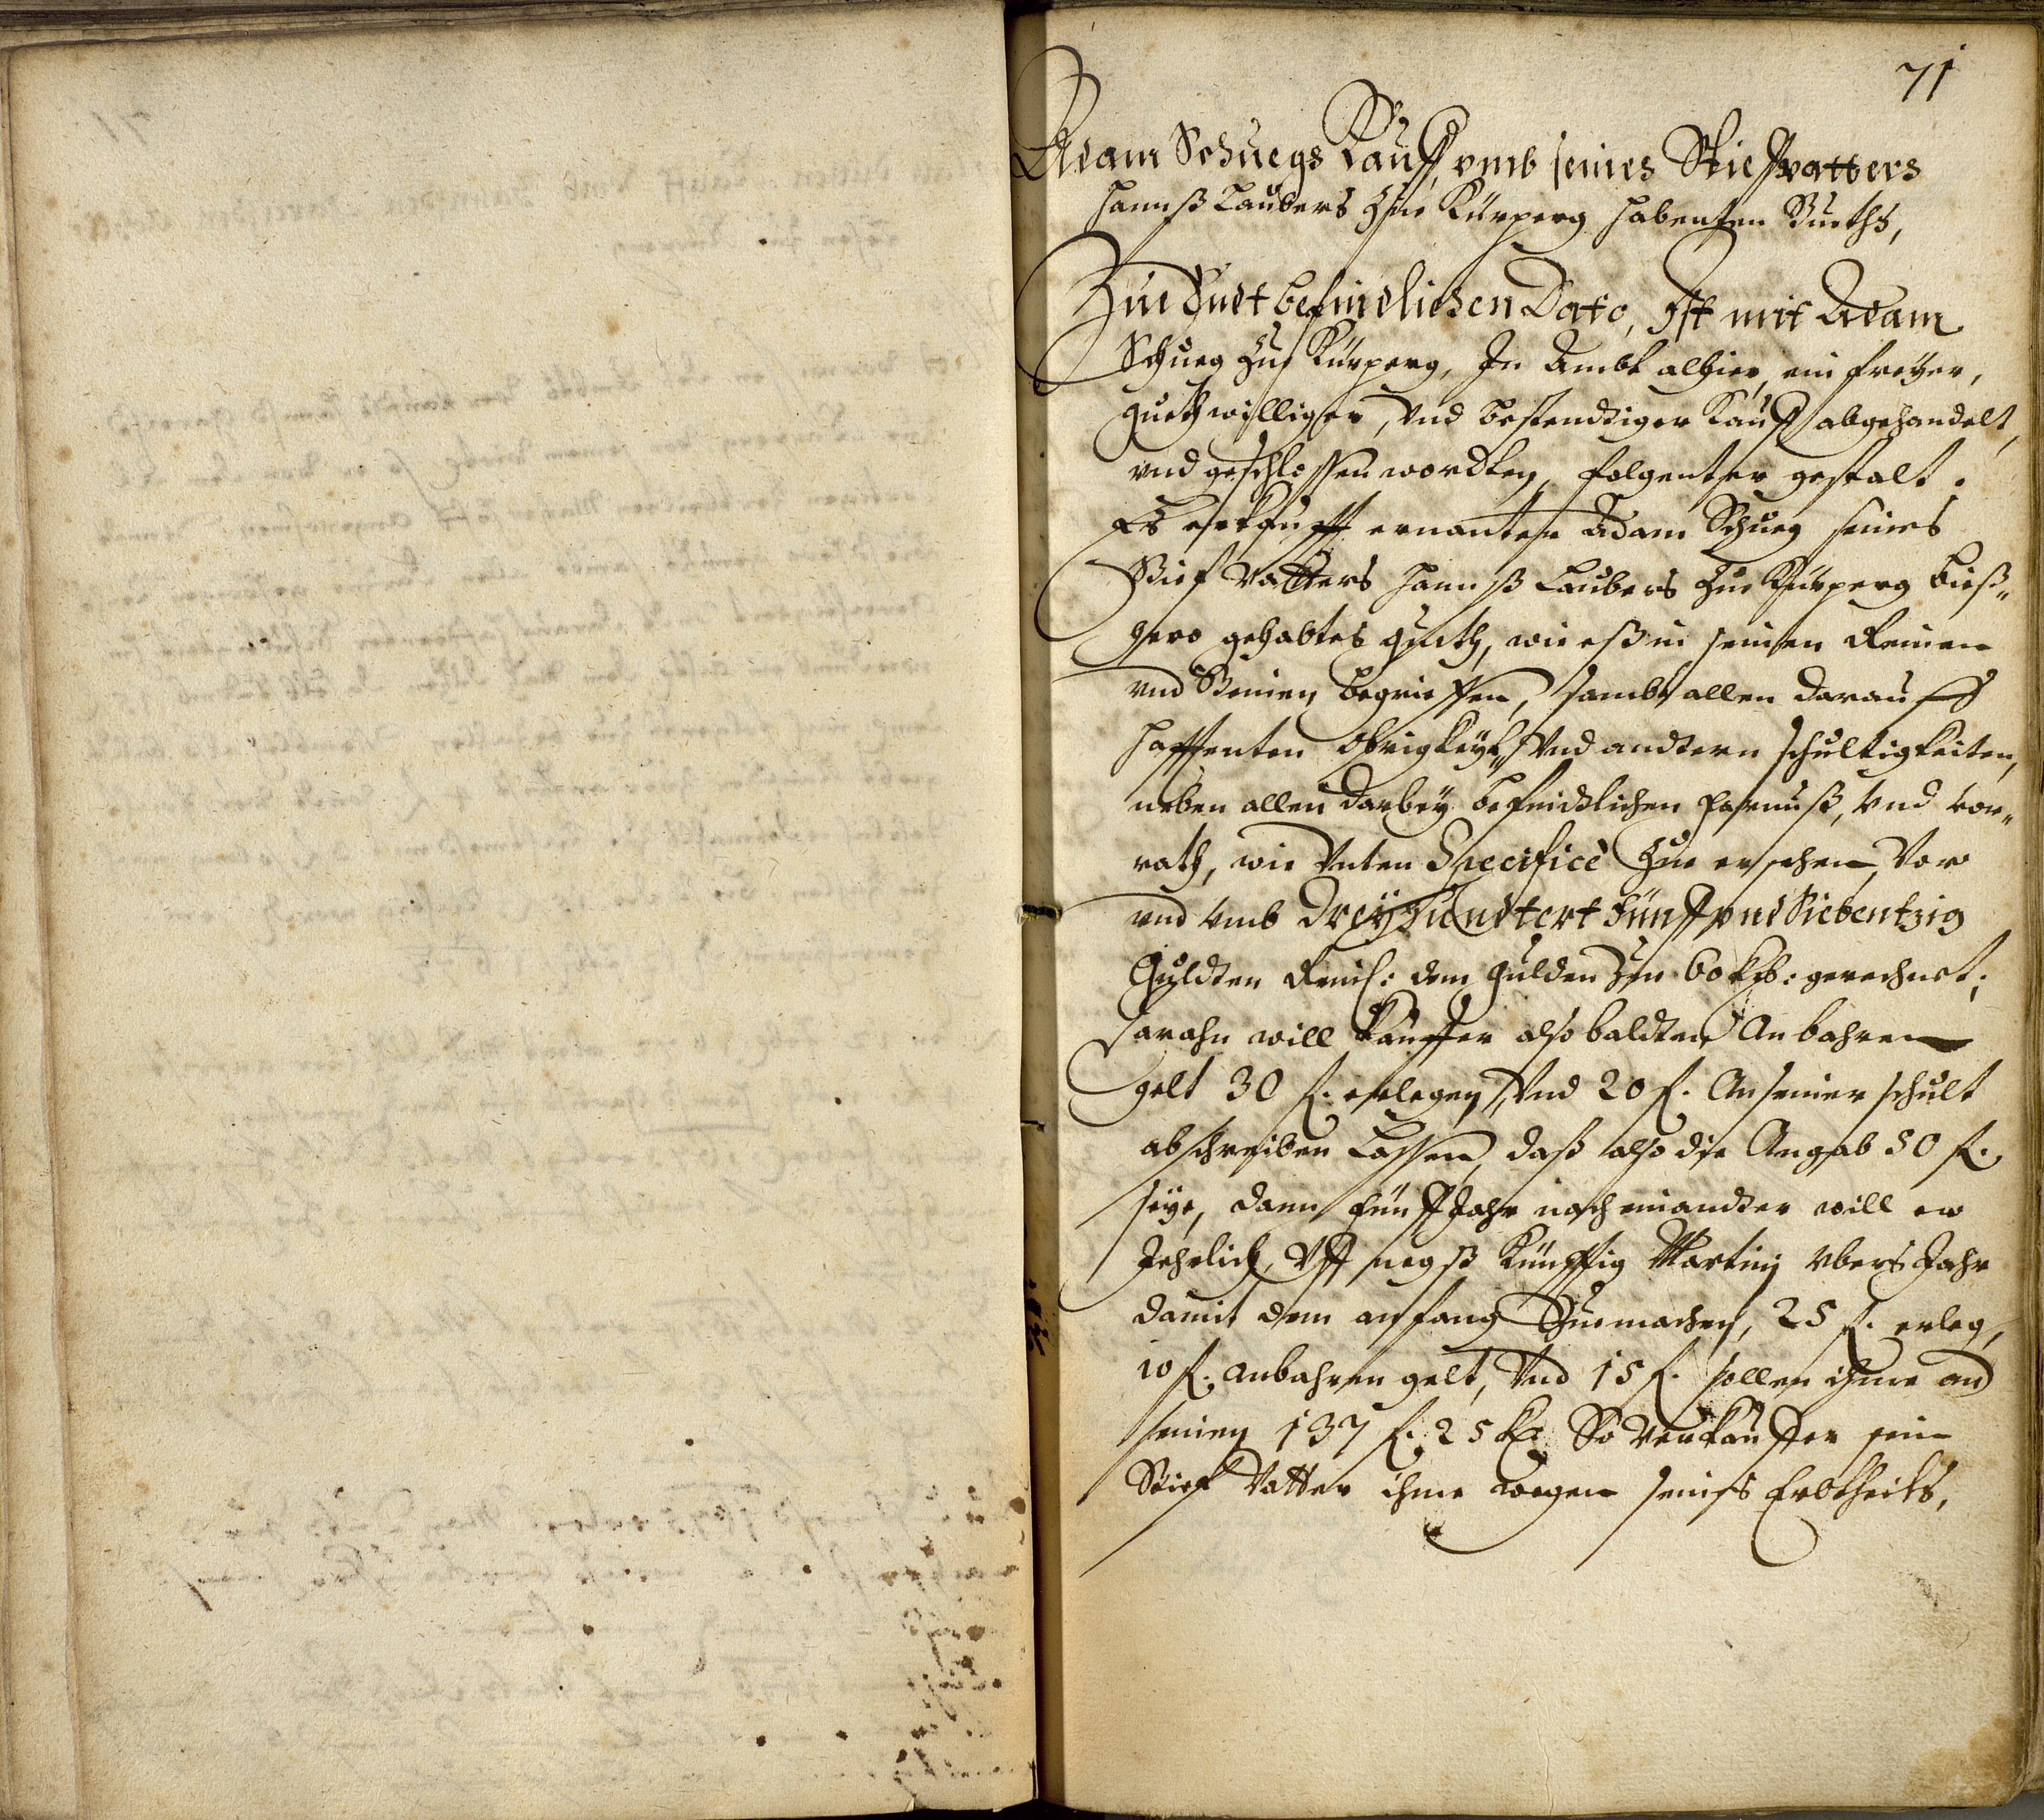 71
Adam Schuegs Kauff vmb seines Stieffvatters
Hannß Laubers Zue Kürperg habenten Gueths,
Zue Endt befindlichen Dato, Ist mit Adam
Schueg Zue Kürperg, In Ambt alhier, ein freyer,
guethwilliger, Vnd bestendtiger Kauff abgehandelt,
vnd geschlossen wordten, folgenter gestalt.
Es erkaufft ernanter Adam Schueg seines
Stief Vatters Hannß Laubers Zue Kürperg bieß„
hero gehabtes Gueth, wie eß in seinen Reinen
vnd Steinen begrieffen, sambt allen darauff
hafftenten Obrigkeyt„ Vnd andtern schultigkeiten,
neben allen darbey befindtlichen fahrnuß, Vnd vor„
rath, wie Vnten Specificè Zue ersehen, Vor
vnd Vmb Dreyhundtert Fünff vnd Siebentzig
Guldten Reinl: den Gulden Zue 60 Kr: gerechnet;
daran will Kauffer also baldten An bahren
gelt 30 f. erlegen, Vnd 20 f. An seiner schult
abschreiben Lassen, daß also die Angab 50 f.
seye, dann Fünff Jahr nach einandter will er
Jehrlich, Vff negst Künfftig Martinj vbers Jahr
damit den anfang Zuemachen, 25 f. erleg,
10 f. an bahren gelt, Vnd 15 f. sollen ihme an
seinen 137 f. 25 Kr. So Verkauffer sein
Stief Vatter ihme wegen seines Erbtheils,